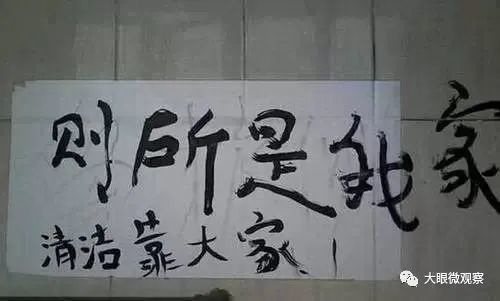 则所是我家
清洁靠大家!
大眼微观察